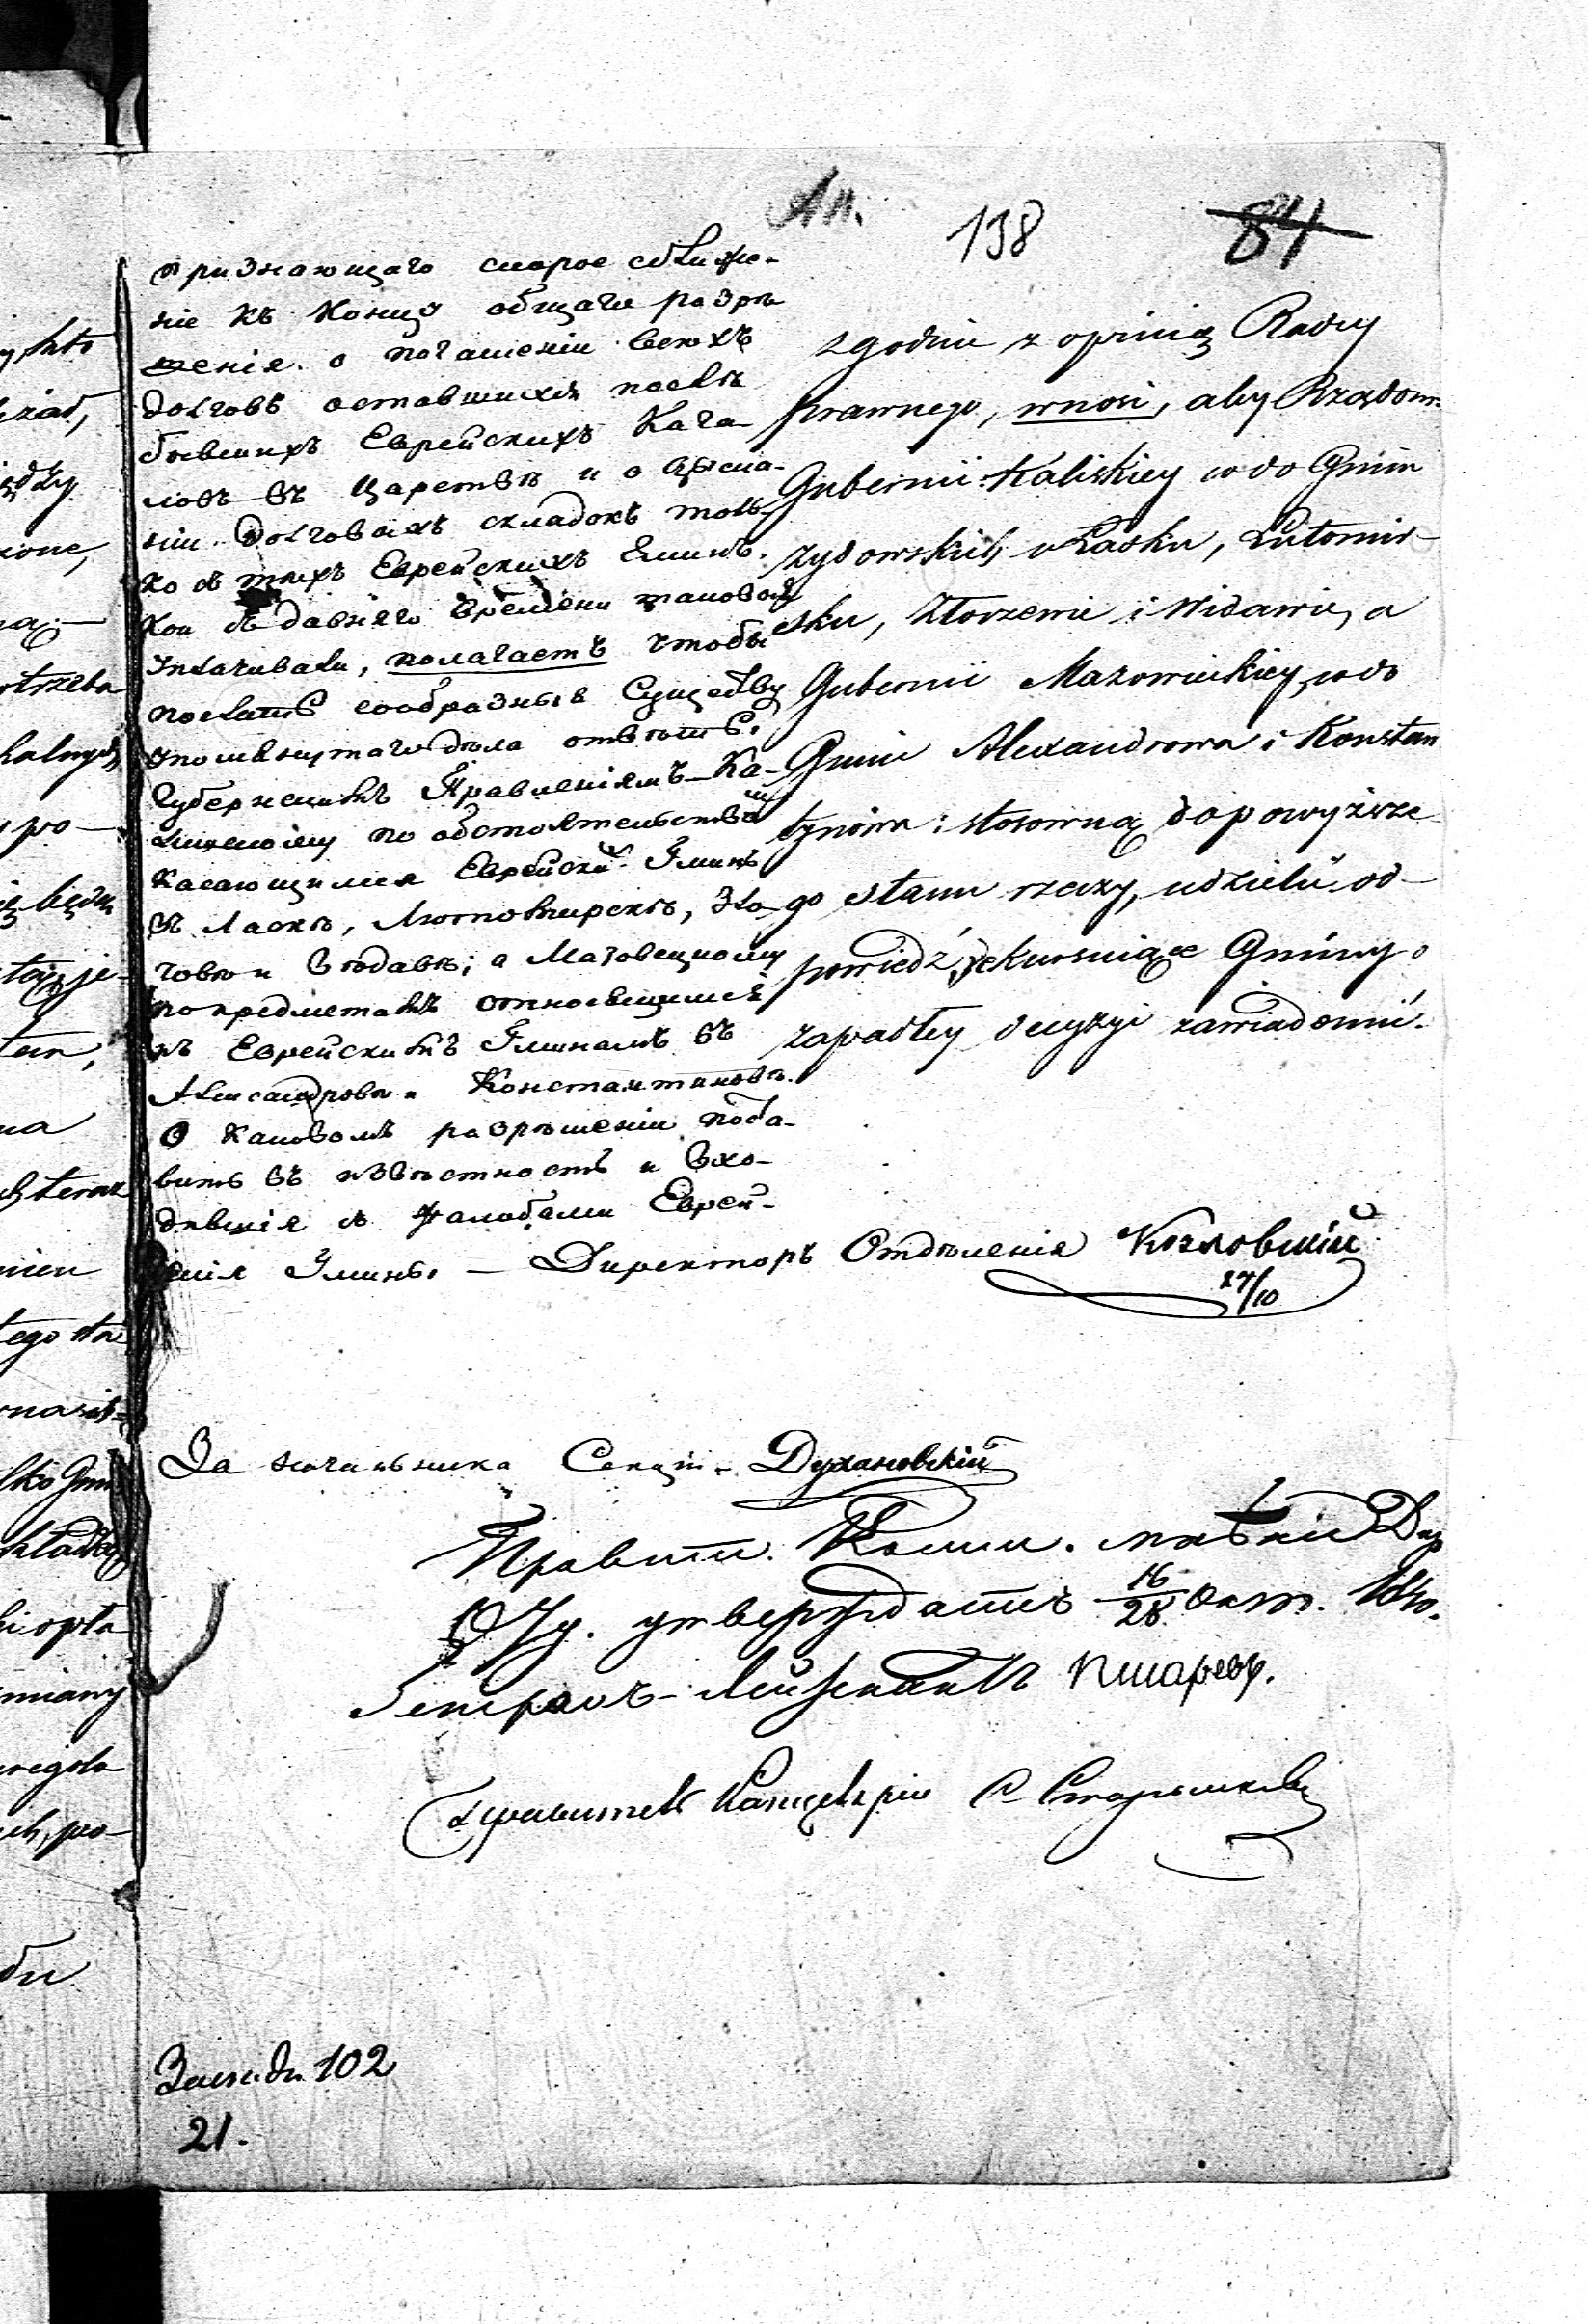 138
84
признающаго скорое сближе-
ніе къ концу общаго разрѣ
шенія о погашеніи всѣхъ
долговъ оставшихся послѣ
бывшихъ Еврейскихъ Кага-
ловъ въ Царствѣ и о
долговыхъ складокъ толь-
ко съ тѣхъ Еврейскихъ Гминъ
кои съ давняго времени таковыя
уплачивали, полагаетъ чтобы
сообразный существу
упомянутаго дѣла отвѣтъ
Губернскимъ Правленіямъ Ка-
лишскому по обстоятельствамъ
касающимся Еврейских Гминъ
въ Ласкѣ, Лютомирскѣ, Зло-
човѣ и Видавѣ; а Мазовецкому
по предметамъ относящимся
къ Еврейскимъ Гминамъ въ
Александровѣ и Константиновѣ.
О каковомъ разрѣшеніи поста-
вить въ извѣстность и вхо-
дившія съ жалобами Еврей-
скія Гмины. — Директоръ Отдѣленія Козловскій
27/10
zgodnie z opinią Radcy
Prawnego, wnosi, aby Rządom
Gubernii Kaliskiey co do Gmin
żydowskich w Łasku, Lutomir-
sku, Złoczewie i Widawie, a
Gubernii Mazowieckiey, co do
Gmin Alexandrowa i Konstan
tynowa; stosowną do powyższe-
go stanu rzeczy, udzielić od-
powiedź, rekursujące Gminy o
zapadłey decyzyi zawiadomić.
За начальника Секціи Духановскій
Правит. Комм. мнѣніе Дир
утверждаетъ 16/28 Окт. 1840.
Генералъ-Лейтенантъ Писаревъ.
Правитель Канцеляріи
102
21.